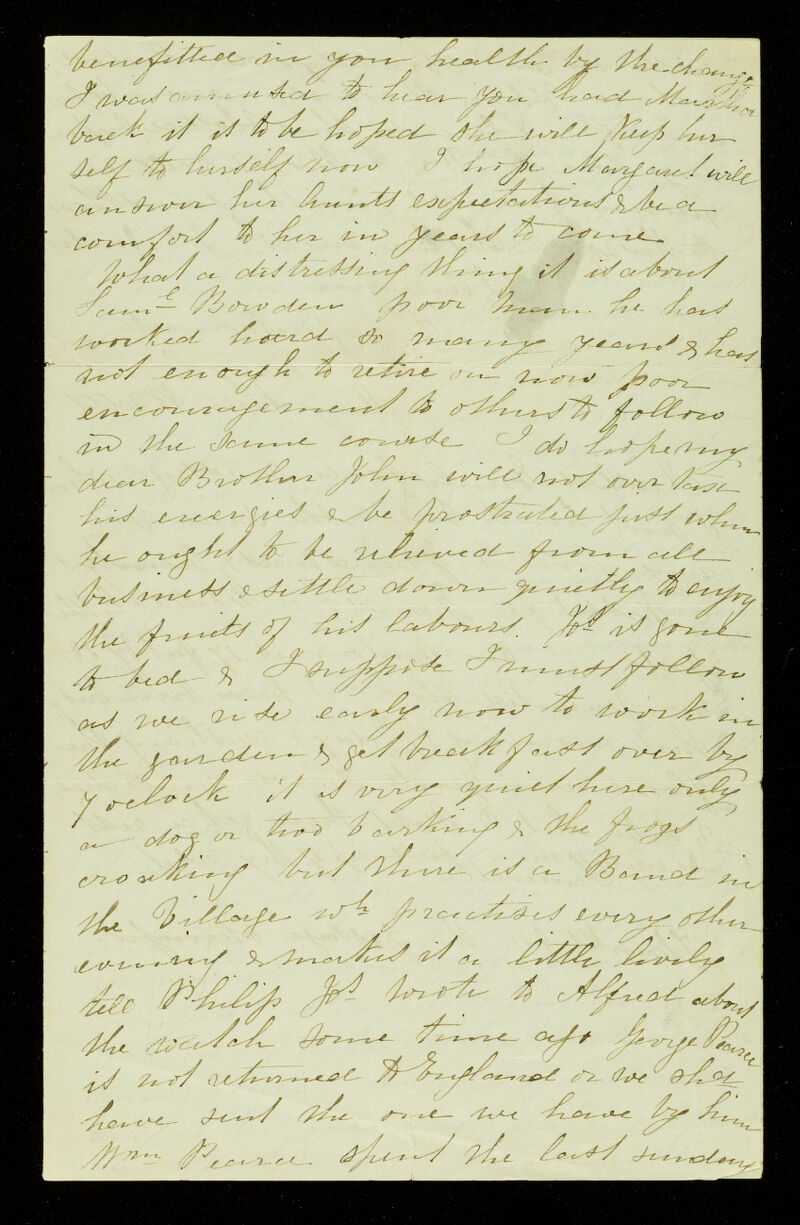 benefitted in you health by the change
I was amused to hear you had Martha
back it is to be hoped she will keep her
self to herself now I hope Margaret will
answer her Aunts expectations & be a
comfort to her in years to come
What a distressing thing it is about
Saml Bowden poor man he has
worked hard so many years & has
not enough to retire on now poor
encouragement to others to follow
in the same course I do hope my
dear Brother John will not over task
his energies & be prostrated just when
he ought to be relieved from all
business & settle down quietly to enjoy
the fruits of his labours. Jos is gone
to bed & I suppose I must follow
as we rise early now to work in
the garden & get breakfast over by
7 oclock it is very quiet here only
a dog or two barking & the frogs
croaking but there is a Band in
the Village wh practises every other
evening & makes it a little lively
tell Philip Jos wrote to Alfred about
the watch some time ago George Pearce
is not returned to England or we shd
have sent the one we have by him
Wm Pearce spent the last sunday